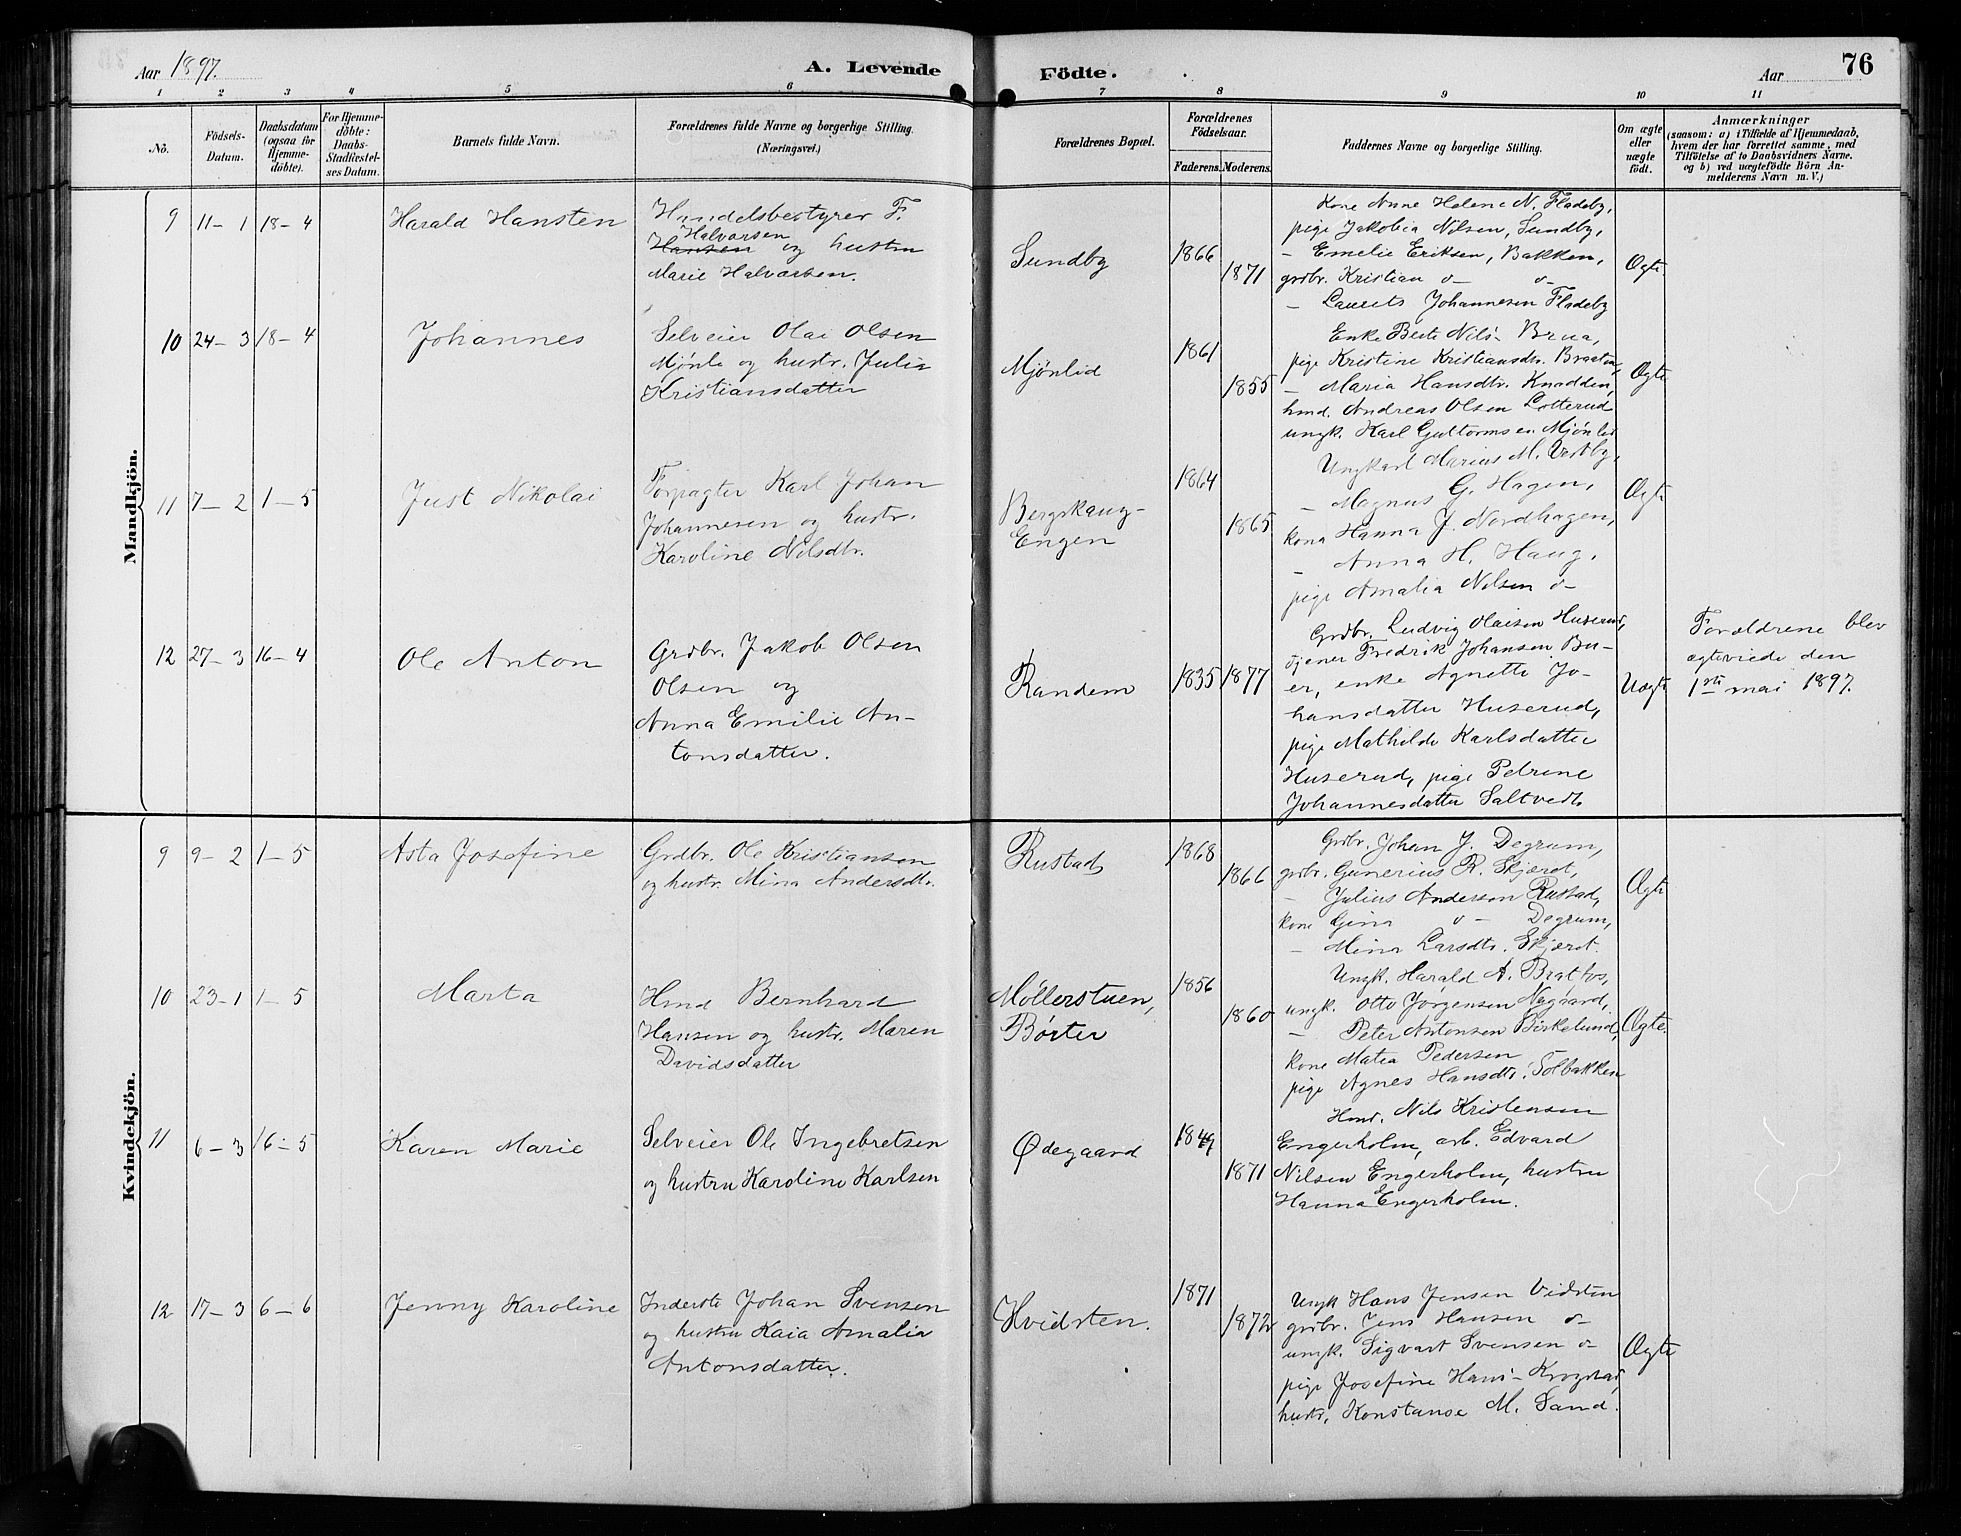 Aar 1897.
A. Levende Födte.
Aar
76
1 2 3 4 5 6 7 8 9 10 11
No.
Födsels-Datum.
Daabsdatum (ogsaa for Hjemme-döbte).
For Hjemme-döbte: Daabs-Stadfæstel-ses Datum.
Barnets fulde Navn.
Forældrenes fulde Navne og borgerlige Stilling. (Næringsvei.)
Forældrenes Bopæl.
Forældrenes Födselsaar.
Faderens. Moderens.
Faddernes Navne og borgerlige Stilling.
Om ægte eller uægte födt.
Anmærkninger
(saasom: a) i Tilfælde af Hjemmedaab, hvem der har forrettet samme, med Tilföielse af to Daabsvidners Navne, og b) ved uægtefödte Börn An-melderens Navn m. V.)
Mandkjön.
9 11-1 18-4 Harald Hansten
Handelsbestyrer F.
Halvorsen
Hansen og hustru
Marie Halvorsen.
Sundby
1866 1871
Kone Anne Helene N. Fladeby,
pige Jakobia Nilsen, Sundby,
— Emelie Eriksen, Bakken,
grdbr. Kristian o— o—
— Laurits Johannesen Fladeby
Ægte
10 24-3 18-4 Johannes
Selveier Olai Olsen
Mjønli og hustr. Julie
Kristiansdatter
Mjønlid
1861 1855
Enke Berte Nils- Brua,
pige Kristine Kristiansdtr. Braaten,
— Maria Hansdtr. Knadden,
hmd. Andreas Olsen Lotterud
ungk. Karl Guttormsen Mjønlid
Ægte
11 7-2 1-5 Just Nikolai
Forpagter Karl Johan
Johannesen og hustr.
Karoline Nilsdtr.
Bergskaug-
Engen
1864 1865
Ungkarl Marius M. Vestby,
— Magnus G. Hagen,
kona Hanna J. Nordhagen,
— Anna H. Haug,
pige Amalia Nilsen o—
Ægte
12 27-3 16-4 Ole Anton
Grdbr. Jakob Olsen
Olsen og
Anna Emilie An-
tonsdatter.
Randem
1835 1877
Grdbr. Ludvig Olaisen Huserud,
tjener Fredrik Johansen Bu-
er, enke Agnette Jo-
hansdatter Huserud,
pige Mathilde Karlsdatter
Huserud, pige Petrine
Johannesdatter Saltvedt
Uægte
Forældrene blev
ægteviede den
1ste mai 1897.
Kvindekjön.
9 9-2 1-5 Asta Josefine
Grdbr. Ole Kristiansen
og hustr. Mina Andersdtr.
Rustad
1868 1866
Grdbr. Johan J. Degrum,
grdbr. Gunerius R. Skjæret,
— Julius Anderson Rustad,
kone Gina o— Degrum,
— Mina Larsdtr. Skjæret
Ægte
10 23-1 1-5 Marta
Hmd Bernhard
Hansen og hustr. Maren
Davidsdatter
Møllerstuen,
Børter
1856 1860
Ungk. Harald A. Bratfos,
ungk. Otto Jørgensen
— Peter Antonsen Birkelund,
kone Matea Pedersen
pige Agnes Hansdtr. Solbakken
Ægte.
11 6-3 16-5 Karen Marie
Selveier Ole Ingebretsen
og hustru Karoline Karlsen
Ødegaard
1849 1871
Hmd. Nils Kristensen
Engerholm, arb. Edvard
Nilsen Engerholm, hustru
Hanna Engerholm.
12 17-3 6-6 Jenny Karoline
Inderste Johan Svensen
og hustru Kaia Amalia
Antonsdatter.
Hvidsten.
1871 1872
Ungk Hans Jensen Vidsten
grdbr. Jens Hansen o—
ungk. Sigvart Svensen o—
pige Josefine Hans- Krogstad,
hustr. Konstanse M. Sand.
Ægte